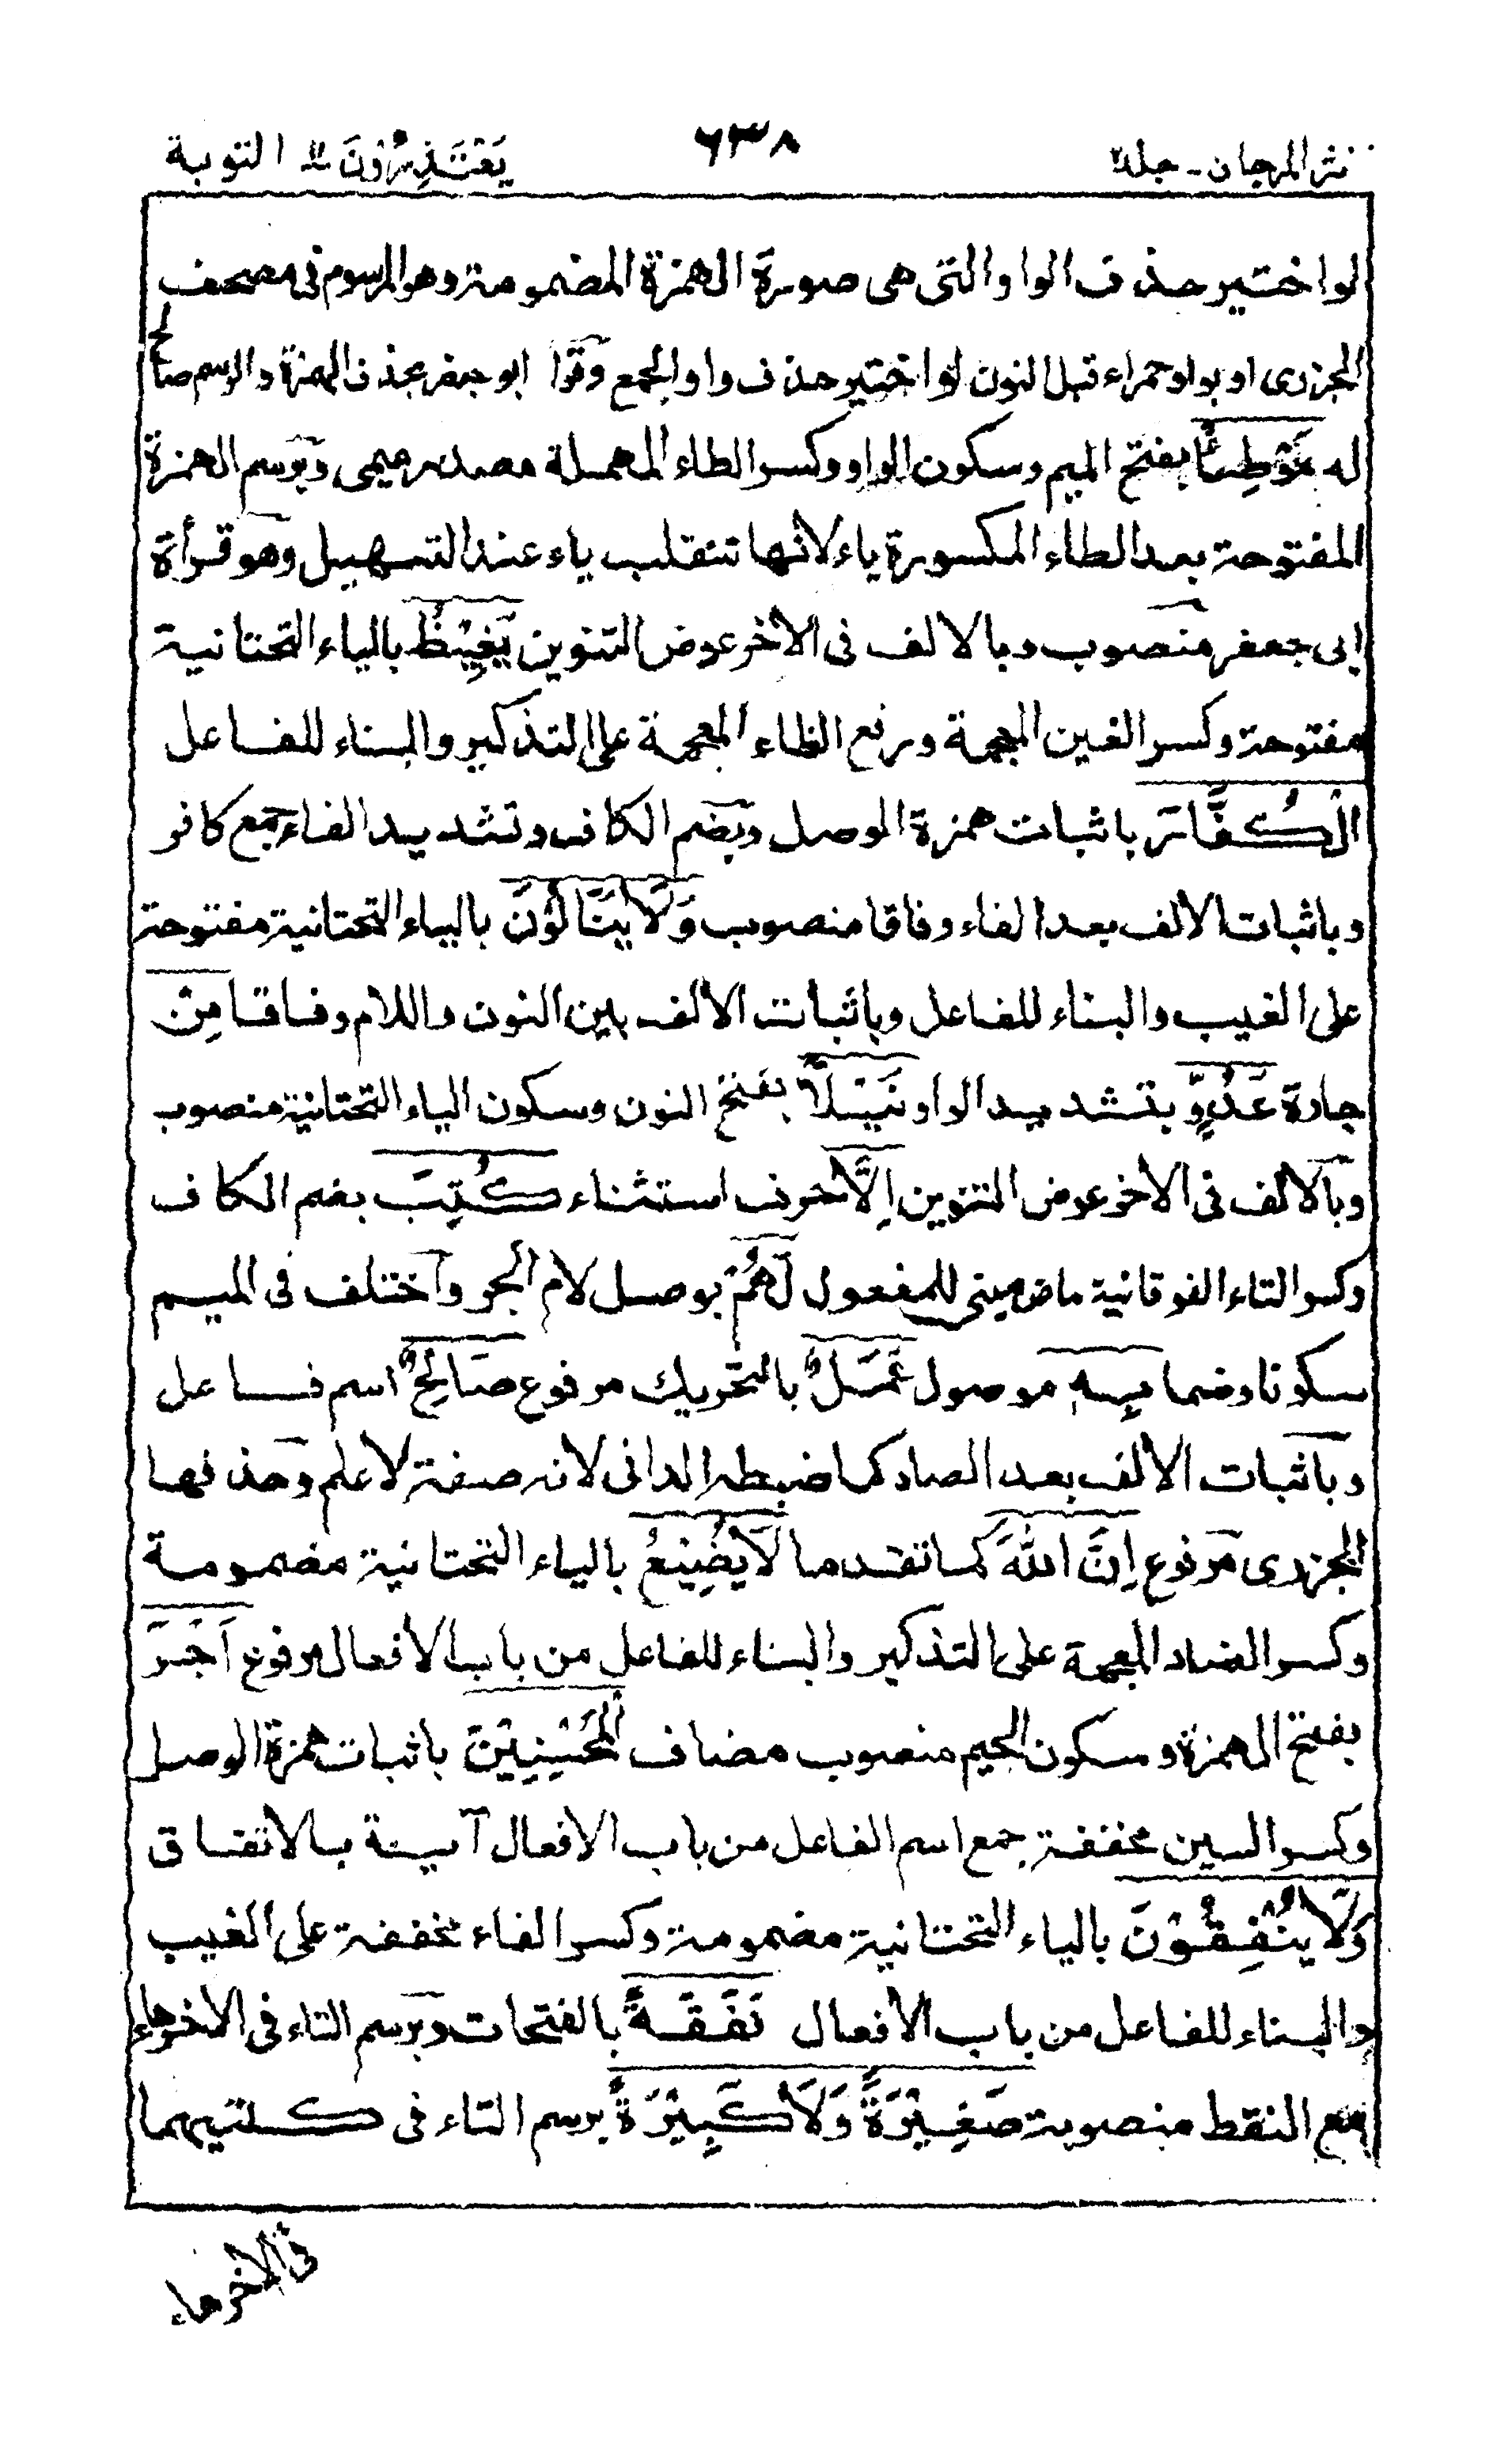 نثر المرجان - جلد ٢ ٦٣٨ يَعْتَذِرُوْنَ ١١ التوبة
لو اختير حذف الواو التى هى صورة الهمزة المضمومة وهو المرسوم فى مصحف
الجزرى او بواو حمراء قبل النون لو اختير حذف واو الجمع وقرأ ابو جعفر بحذف الهمزة والرسم صالح
له مَوْطِئًا بفتح الميم وسكون الواو وكسر الطاء المهملة مصدر ميمى وبرسم الهمزة
المفتوحة بعد الطاء المكسورة ياء لانها تنقلب ياء عند التسهيل وهو قرأة
ابى جعفر منصوب وبالالف فى الاخر عوض التنوين يَغِيْظُ بالياء التحتانية
مفتوحة وكسر الغين المعجمة ورفع الظاء المعجمة على التذكير والبناء للفاعل
الْكُفَّارَ باثبات همزة الوصل وبضم الكاف وتشديد الفاء جمع كافر
وباثبات الالف بعد الفاء وفاقا منصوب وَلَا يَنَالُوْنَ بالياء التحتانية مفتوحة
على الغيب والبناء للفاعل وباثبات الالف بين النون واللام وفاقا مِنْ
جارة عَدُوٍّ بتشديد الواو نَيْلًا بفتح النون وسكون الياء التحتانية منصوب
وبالالف فى الاخر عوض التنوين اِلَّا حرف استثناء كُتِبَ بضم الكاف
وكسر التاء الفوقانية ماض مبنى للمفعول لَهُمْ بوصل لام الجر واختلف فى الميم
سكونا وضما بِهٖ موصول عَمَلٌ بالتحريك مرفوع صَالِحٌ اسم فاعل
وباثبات الالف بعد الصاد كما ضبطه الدانى لانه صفة لا علم وحذفها
الجزرى مرفوع اِنَّ اللّٰهَ كما تقدما لَا يُضِيْعُ بالياء التحتانية مضمومة
وكسر الضاد المعجمة على التذكير والبناء للفاعل من باب الافعال مرفوع اَجْرَ
بفتح الهمزة وسكون الجيم منصوب مضاف الْمُحْسِنِيْنَ باثبات همزة الوصل
وكسر السين مخففة جمع اسم الفاعل من باب الافعال آية بالاتفاق
وَلَا يُنْفِقُوْنَ بالياء التحتانية مضمومة وكسر الفاء مخففة على الغيب
والبناء للفاعل من باب الافعال نَفَقَةً بالفتحات وبرسم التاء فى الاخر هاء
مع النقط منصوبة صَغِيْرَةً وَلَا كَبِيْرَةً برسم التاء فى كلتيهما
فى الاخر هاء